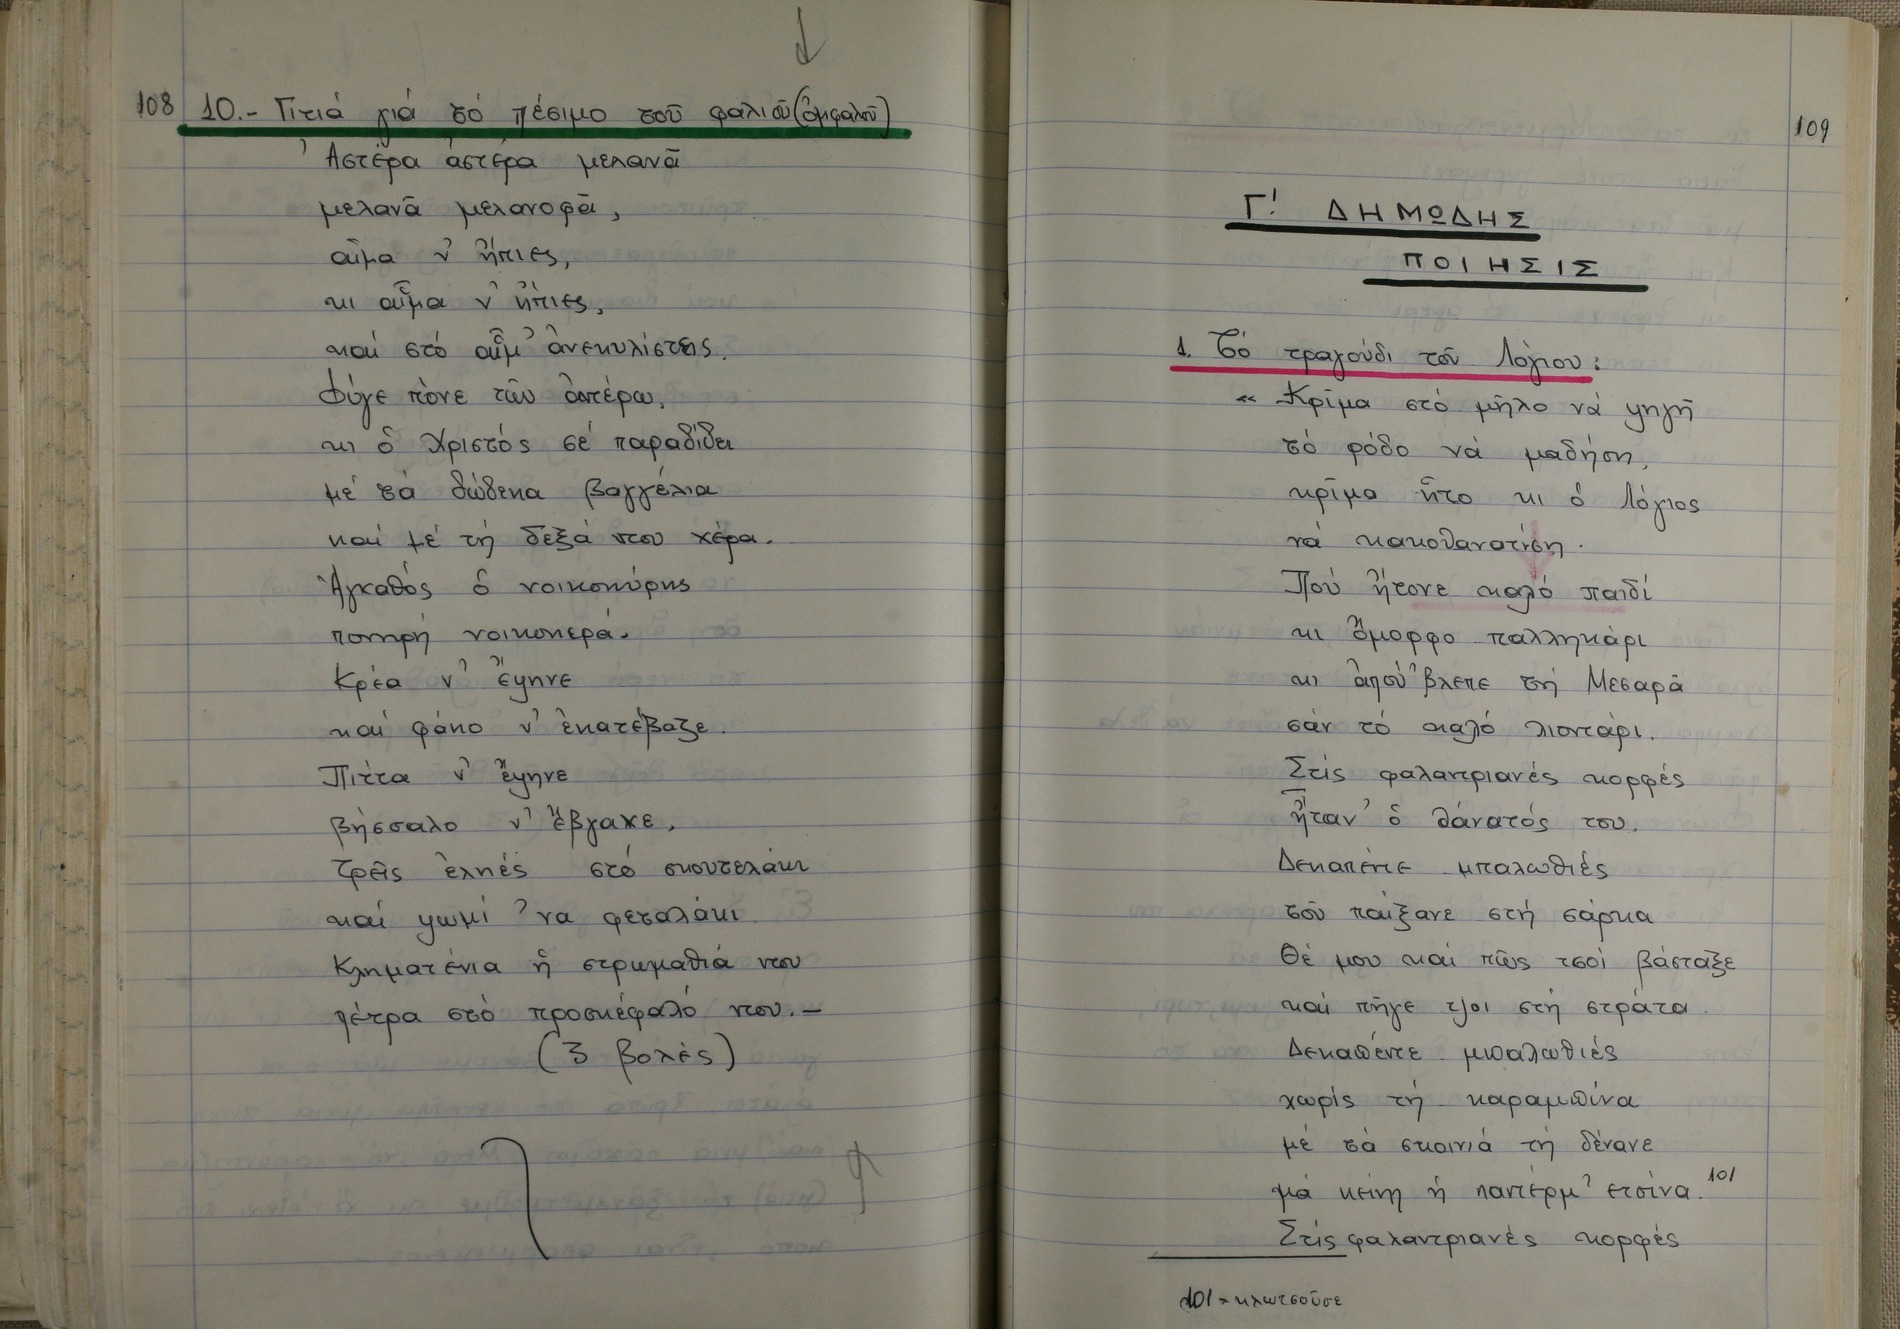 108
10.- Γιτιά γιά τό πέσιμο τοῦ φαλιοῦ (ὀμφαλοῦ)
Ἀστέρα ἀστέρα μελανᾶ
μελανᾶ μελανοφᾶ,
αἷμα ν' ἤπιες,
κι αἷμα ν' ἤπιες,
καί στό αἷμ' ἀνεκυλίστεις.
Φύγε πόνε τῶν ἀστέρω,
κι ὁ Χριστός σέ παραδίδει
μέ τά δώδεκα βαγγέλια
καί μέ τή δεξά ντου χέρα.
Ἀγκαθός ὁ νοικοκύρης
πονηρή νοικοκερά.
Κρέα ν' ἔψηνε
καί φάκο ν' ἐκατέβαζε.
Πίττα ν' ἔψηνε
βήσσαλο ν' ἔβγαχε,
τρεῖς ἐληές στό σκουτελάκι
καί ψωμί 'να φεταλάκι
Κληματένια ἡ στρωμαθιά ντου
πέτρα στό προσκέφαλό ντου.-
(3 βολές)
109
Γ! ΔΗΜΩΔΗΣ
ΠΟΙΗΣΙΣ
1. Τό τραγούδι τοῦ Λόγιου:
« Κρῖμα στό μῆλο νά ψηγῆ
τό ρόδο νά μαδήση,
κρῖμα ἦτο κι ὁ Λόγιος
νά κακοθανατίση.
Πού ἤτονε καλό παιδί
κι ὄμορφο παλληκάρι
κι ἀπού 'βλεπε τή Μεσαρᾶ
σάν τό καλό λιοντάρι.
Στίς φαλαντριανές κορφές
ἦταν' ὁ θάνατός του.
Δεκαπέντε μπαλωθιές
τοῦ παίξανε στή σάρκα
Θέ μου καί πῶς τσοί βάσταξε
καί πῆγε τζοι στή στράτα.
Δεκαπέντε μπαλωθιές
χωρίς τή καραμπίνα
μέ τά σκοινιά τή δένανε
μά κείνη ἡ παντέρμ' ετσίνα.101
Στίς φαλαντριανές κορφές
101 = κλωτσοῦσε